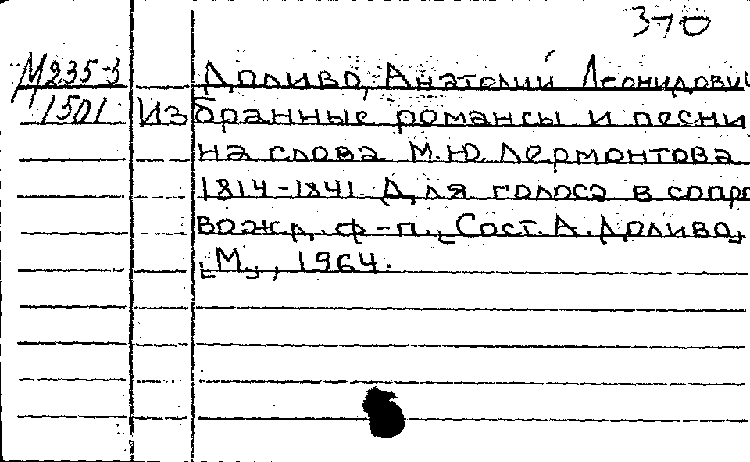 370
М235-3 Доливо, Анатолий Леонидови
1501 Избранные романсы и песни
на слова М.Ю. Лермонтова
1814-1841. Для голоса в сопро
вожд. ф-п. [Сост. А. Доливо]
[М], 1964.